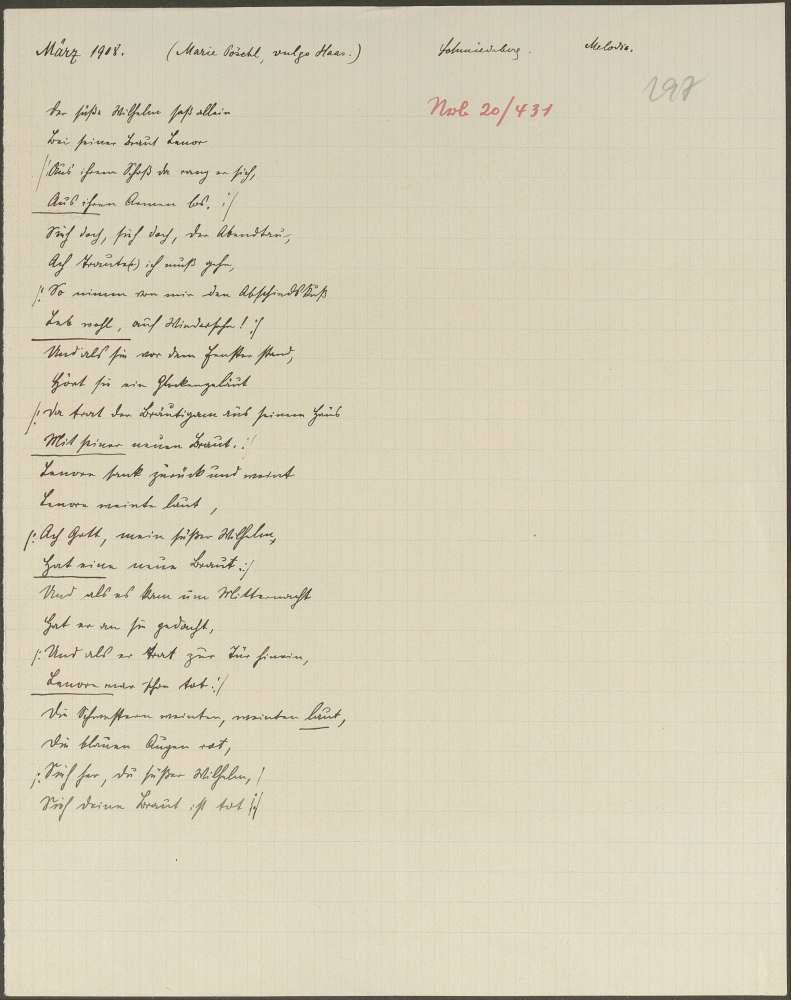 März 1908. (Marie Pöschl, vulgo Haas.) Schmiedeberg. Melodie.
297
Nrb 20/431
Der süße Wilhelm saß allein
Bei seiner Braut Lenor
/: Aus ihrem Schoß da rang er sich,
Aus ihren Armen los. :/
Sieh doch, sieh doch, der Abendtau,
Ach Traute(r) ich muß gehn,
/: So nimm von mir den Abschiedskuß
Leb wohl, auf Wiedersehn! :/
Und als sie vor dem Fenster stand,
Hört sie ein Glockengeläut
/: Da trat der Bräutigam aus seinem Haus
Mit seiner neuen Braut. :/
Lenore sank zurück und weint
Lenore weinte laut,
/: Ach Gott, mein süßer Wilhelm,
Hat eine neue Braut :/
Und als es kam um Mitternacht
Hat er an sie gedacht,
/: Und als er trat zur Tür hinein,
Lenore war schon tot :/
Die Schwestern weinten, weinten laut,
Die blauen Augen rot,
/: Sieh her, du süßer Wilhelm, !
Sieh deine Braut ist tot :/